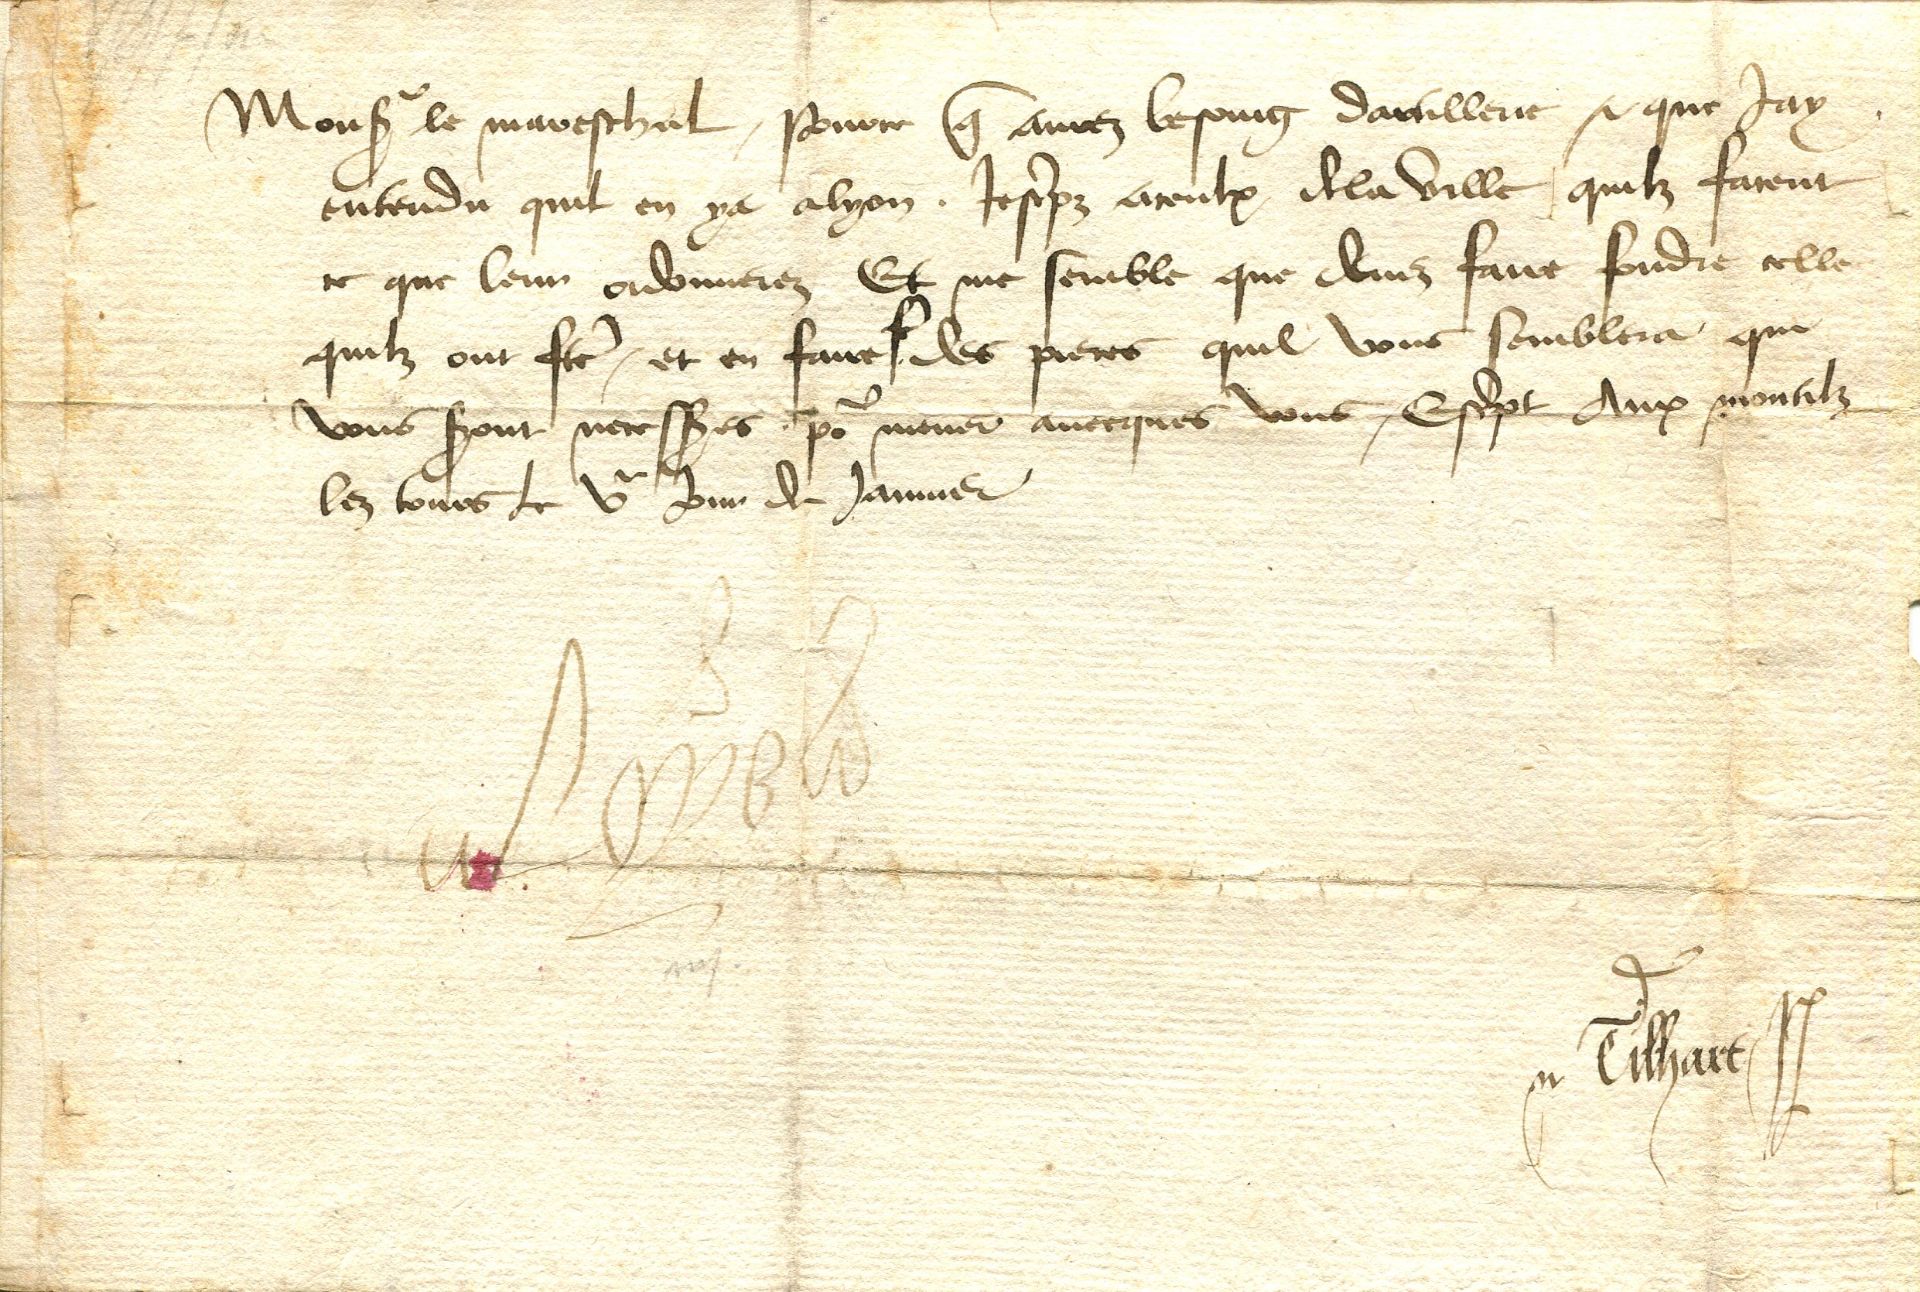 Monsr le mareschal, Pource q avez besoing dartillerie & que Jay
entendu quil en ya alyon. Jescrpz aceulx dela ville quilz facent
ce que leur ordonnerez Et me semble que devez faire fondre celle
quilz ont fte, et en faire des pieces quil vous semblera qui
vous seront necesses po mener avecques vous, Escrpt Aux montilz
lez tours le Ve jour de Janvier
Loys
Tilhart